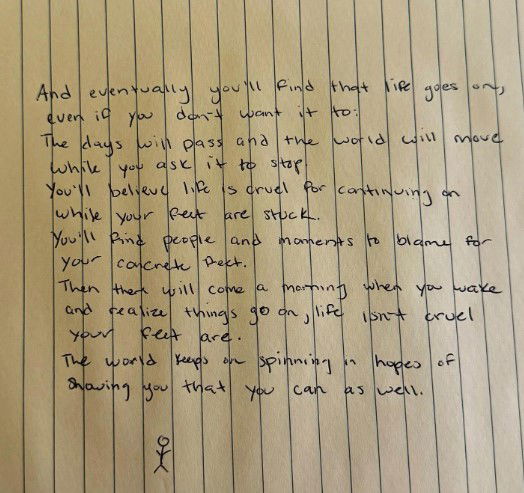 And eventually you'll find that life goes on,
even if you don't want it to.
The days will pass and the world will move
while you ask it to stop.
You'll believe life is cruel for continuing on
while your feet are stuck.
You'll find people and moments to blame for
your concrete feet.
Then there will come a morning when you wake
and realize things go on, life isn't cruel
your feet are.
The world keeps on spinning in hopes of
showing you that you can as well.